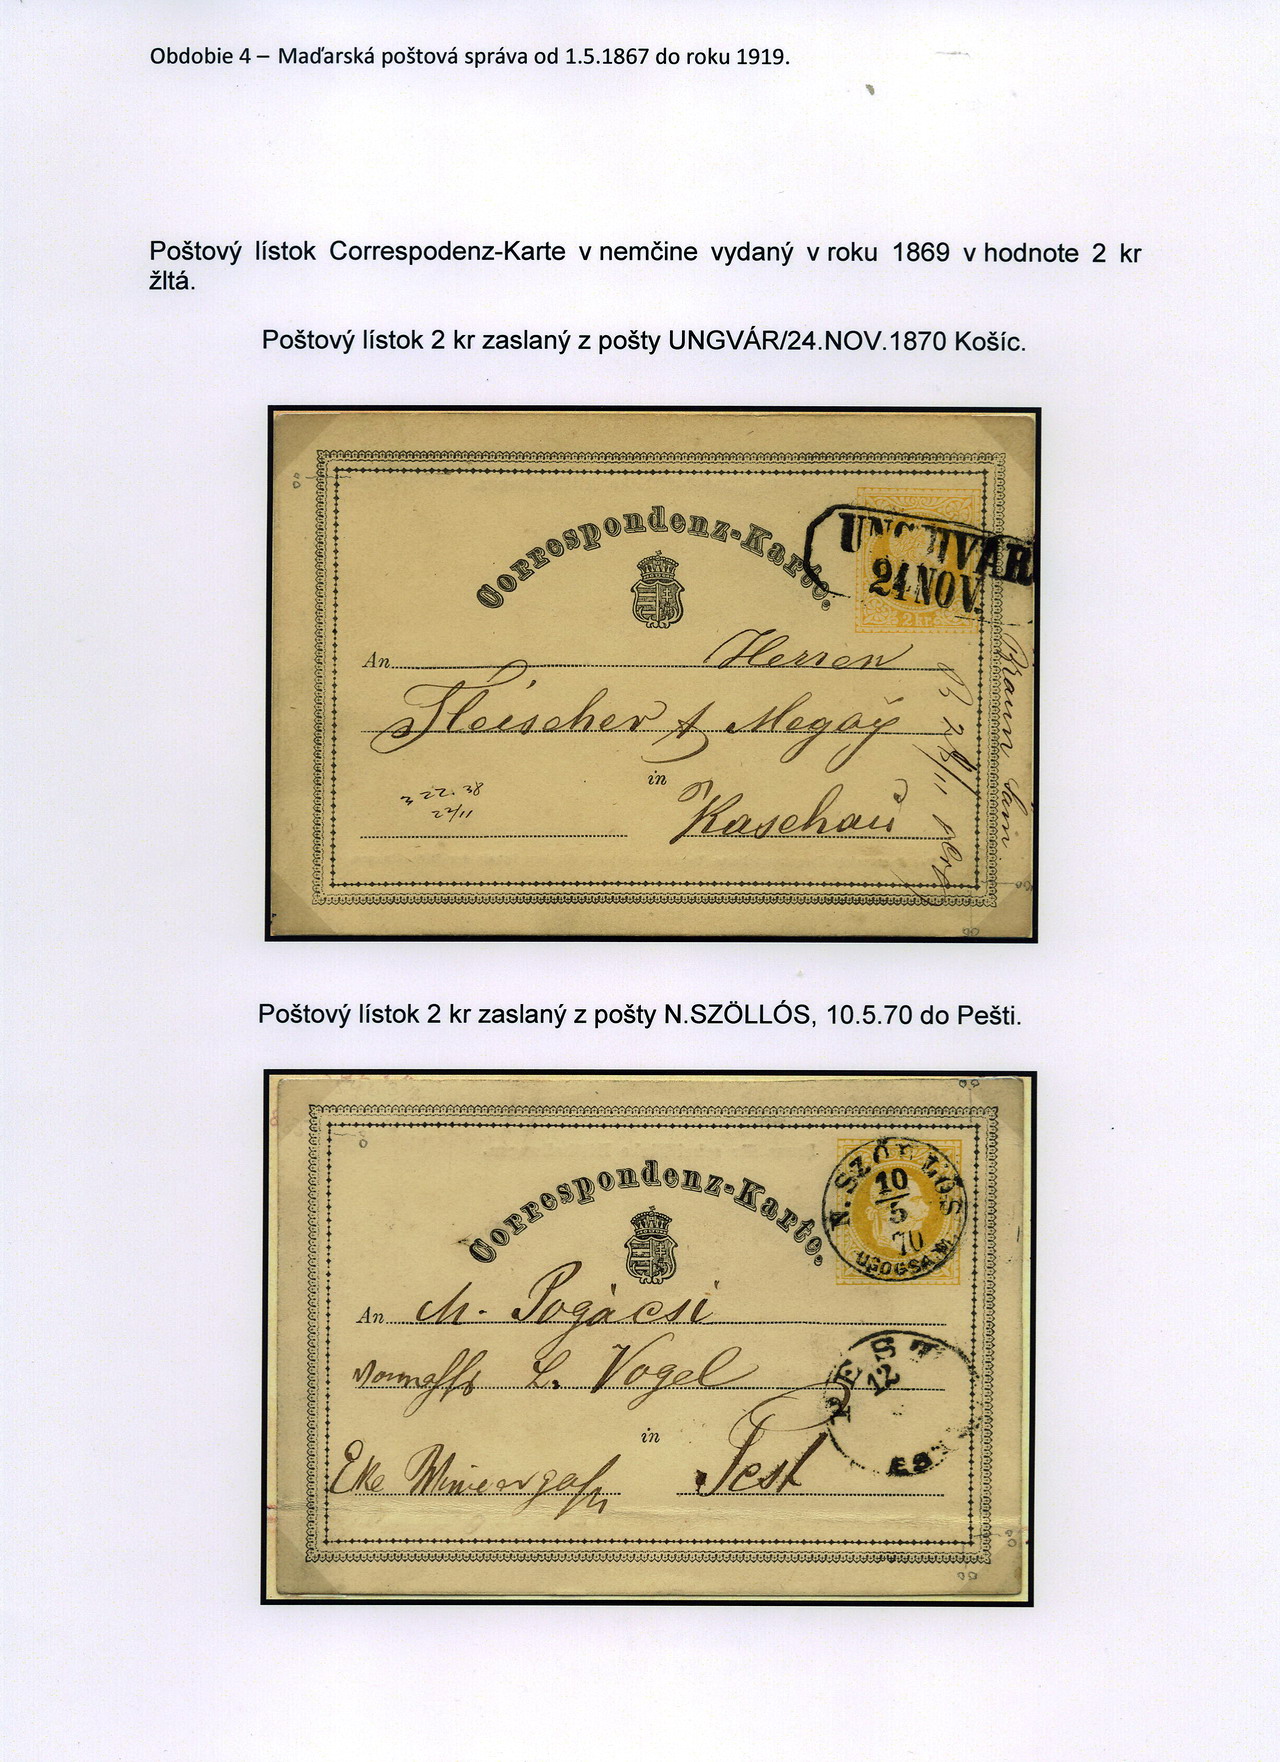 Obdobie 4 – Maďarská poštová správa od 1.5.1867 do roku 1919.
Poštový lístok Correspodenz-Karte v nemčine vydaný v roku 1869 v hodnote 2 kr
žltá.
Poštový lístok 2 kr zaslaný z pošty UNGVÁR/24.NOV.1870 Košíc.
Correspondenz-Karte.
UNGHVÁR
24 NOV.
2 kr.
An Herren
Fleischer & Megay
in
Kaschau
Braun Sam.
22/11
Poštový lístok 2 kr zaslaný z pošty N.SZÖLLÓS, 10.5.70 do Pešti.
Correspondenz-Karte.
N. SZÖLLÖS
10/5
70
UGOGSA M.
An M. Pogácsi
L. Vogel
in
Pest
PEST
12